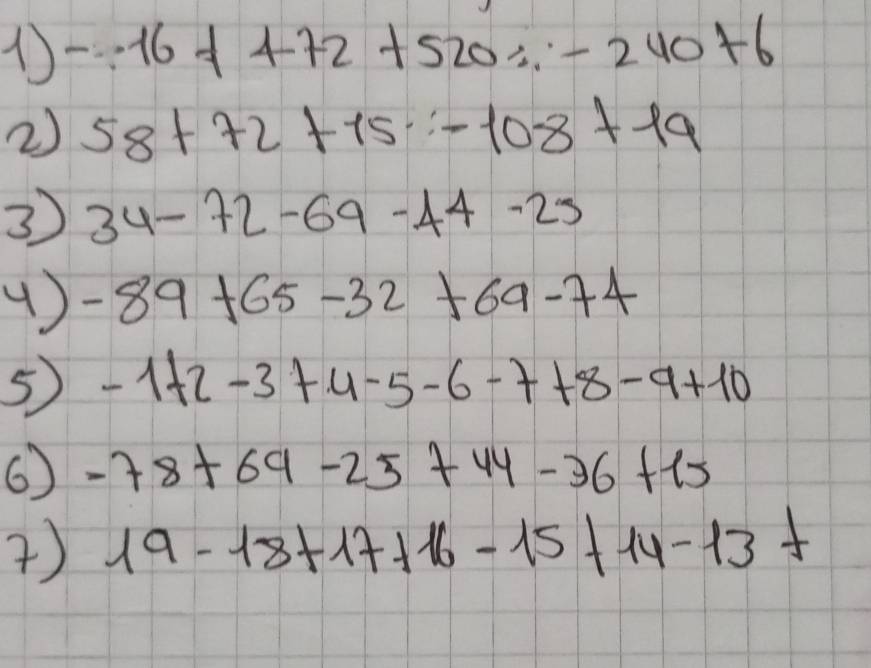 1) - 16 + 472 + 520 - 240 + 6
2) 58 + 72 + 15 - 108 + 19
3) 34 - 72 - 69 - 44 - 25
4) - 89 + 65 - 32 + 69 - 74
5) - 1 + 2 - 3 + 4 - 5 - 6 - 7 + 8 - 9 + 10
6) - 78 + 69 - 25 + 44 - 36 + 15
7) 19 - 18 + 17 + 16 - 15 + 14 - 13 +